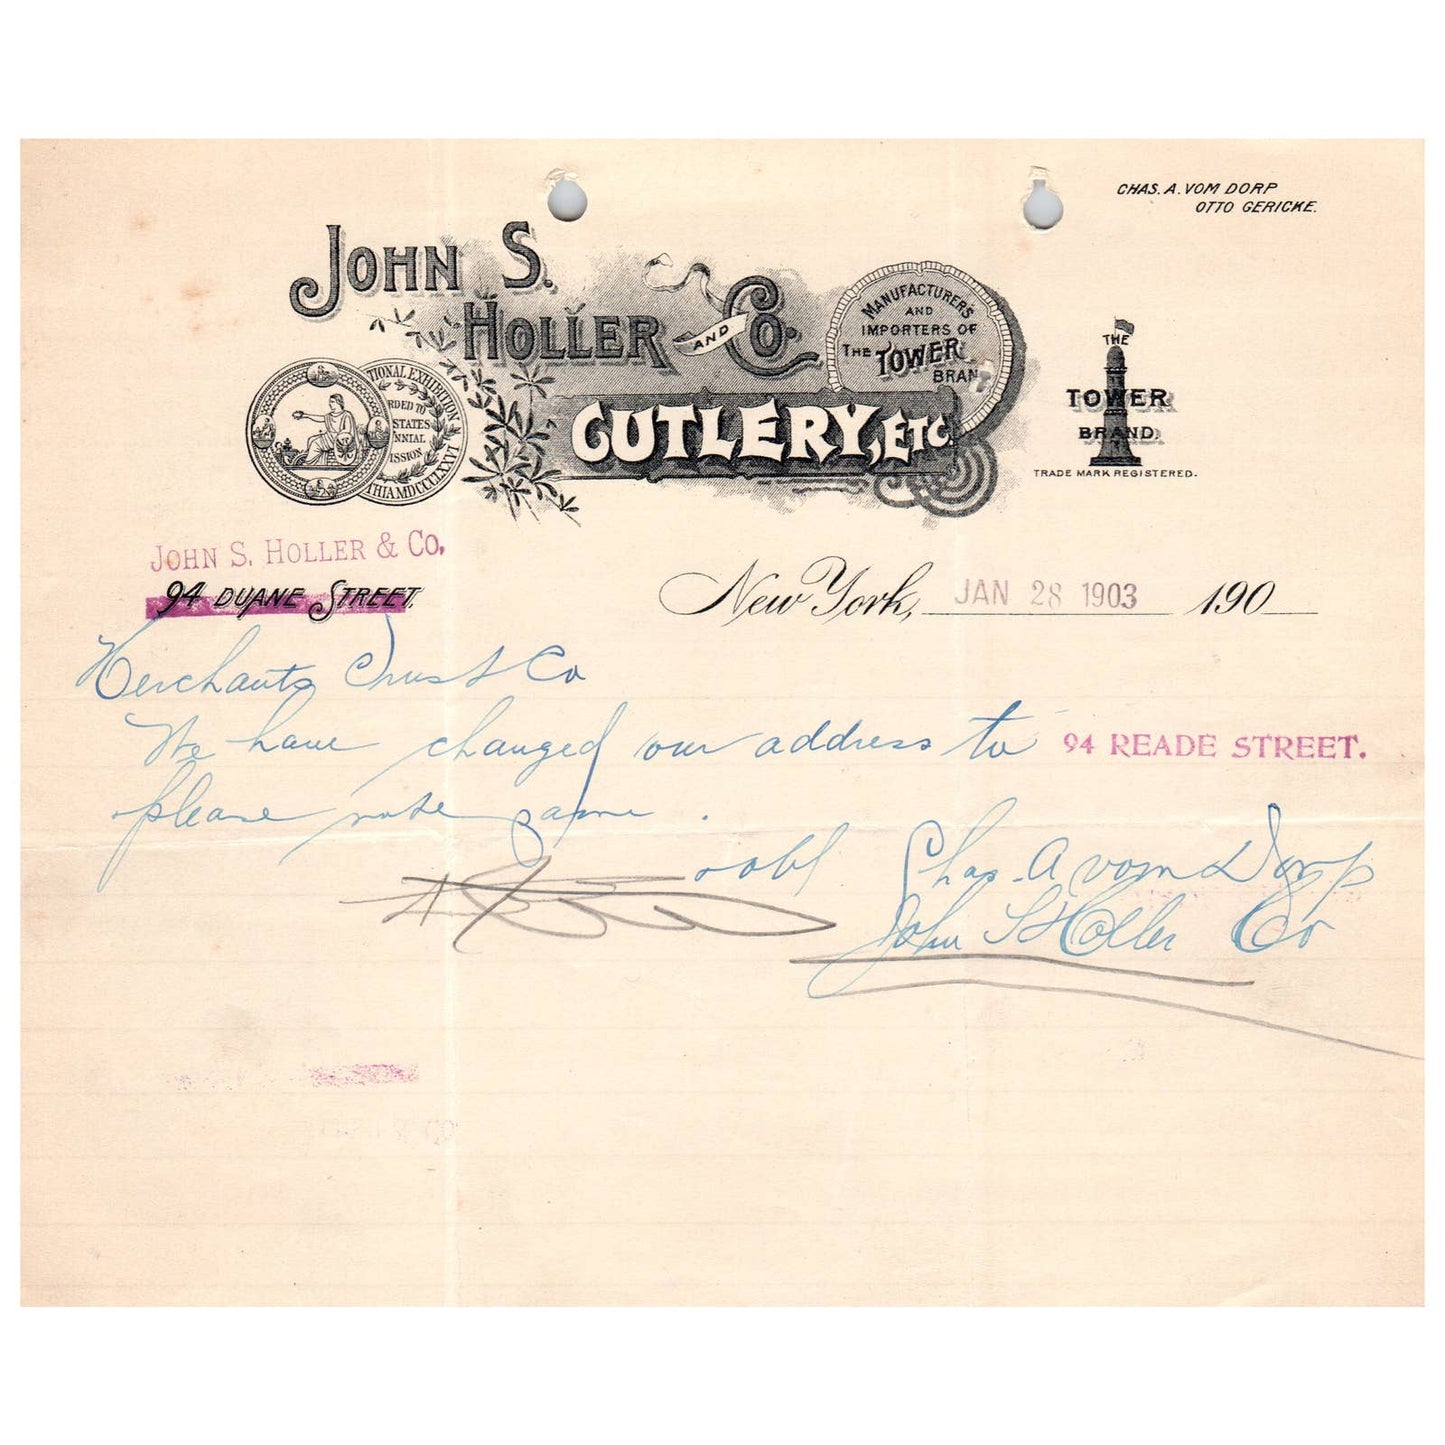 CHAS. A. VOM DORP
OTTO GERICKE.
JOHN S.
HOLLER AND CO.
CUTLERY, ETC.
MANUFACTURERS
AND
IMPORTERS OF
THE TOWER
BRAND
THE
TOWER
BRAND.
TRADE MARK REGISTERED.
TIONAL EXHIBITION
RDED TO
STATES
NNIAL
ISSION
THIA MDCCCLXXVI
JOHN S. HOLLER & CO.
94 DUANE STREET.
New York, JAN 28 1903 190
Merchants Trust Co
We have changed our address to 94 READE STREET.
please note same.
Chas. A vom Dorp
John S Holler Co
& CO